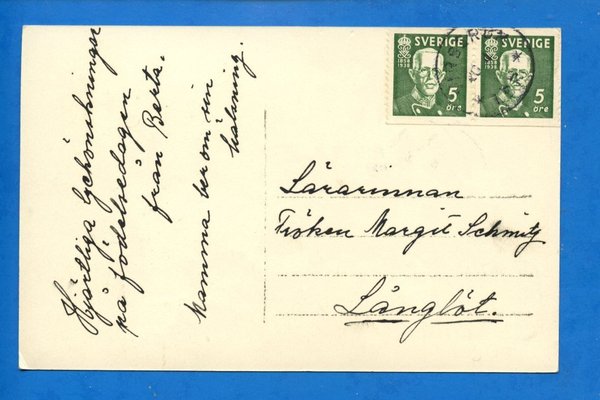 Hjärtliga lyckönskningar
på födelsedagen
från Berta.
Mamma ber om sin
hälsning.
SVERIGE
1858
1938
5
öre
SVERIGE
5
öre
Lärarinnan
Fröken Margit Schmitz
Långlöt.